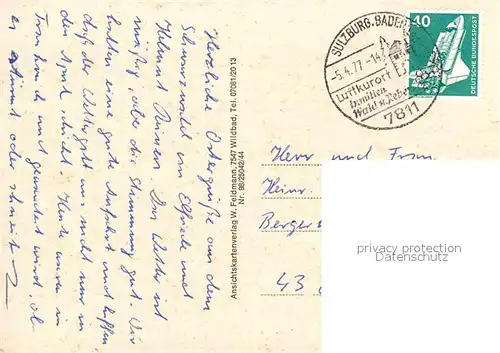 Herzliche Ostergrüße aus dem
Schwarzwald von Elfriede und
Helmut Das Wetter ist
mäßig, aber die Stimmung gut. Wir
hatten eine gute Anfahrt und hoffen
daß der Wettergott uns nicht nur in
den April schickt. Heute waren in
und gewandert wird, ob
es stürmt oder schneit
Ansichtskartenverlag W. Feldmann, 7547 Wildbad, Tel. 07081/20 13
Nr. 98/25042/44
SULZBURG, BADEN
-5.4.77.-14
Luftkurort
inmitten
Wald u. Reben
7811
40
DEUTSCHE BUNDESPOST
Herr und Frau
Heinr.
Berger
43
privacy protection
Datenschutz